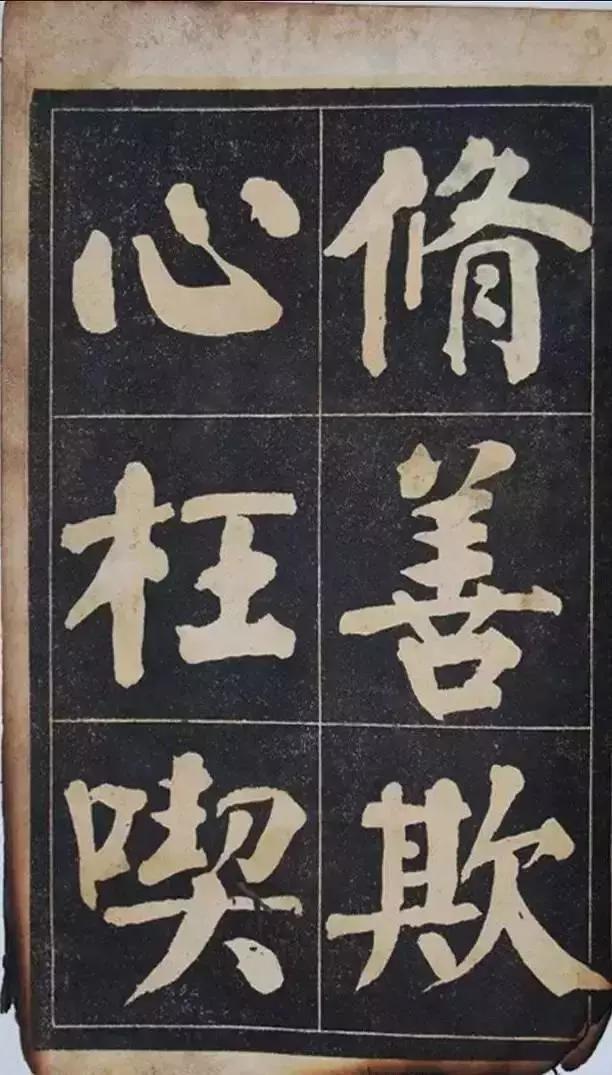 脩善欺
心枉喫